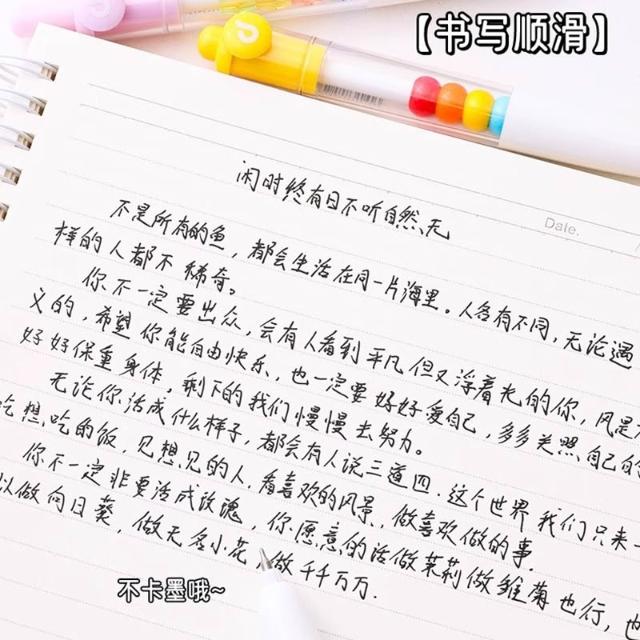 【书写顺滑】
Date.
闲时终有日不听自然无
不是所有的鱼，都会生活在同一片海里。人各有不同，无论遇
样的人都不稀奇。
你不一定要出众，会有人看到平凡但又浮着光的你，风是
义的，希望你能自由快乐，也一定要好好爱自己，多多关照自己的
好好保重身体，剩下的我们慢慢去努力。
无论你活成什么样子，都会有人说三道四.这个世界我们只来一
吃想吃的饭，见想见的人，看喜欢的风景，做喜欢做的事.
你不一定非要活成玫瑰，你愿意的话做茉莉做雏菊也行，也
以做向日葵，做无名小花，做千千万万.
不卡墨哦~